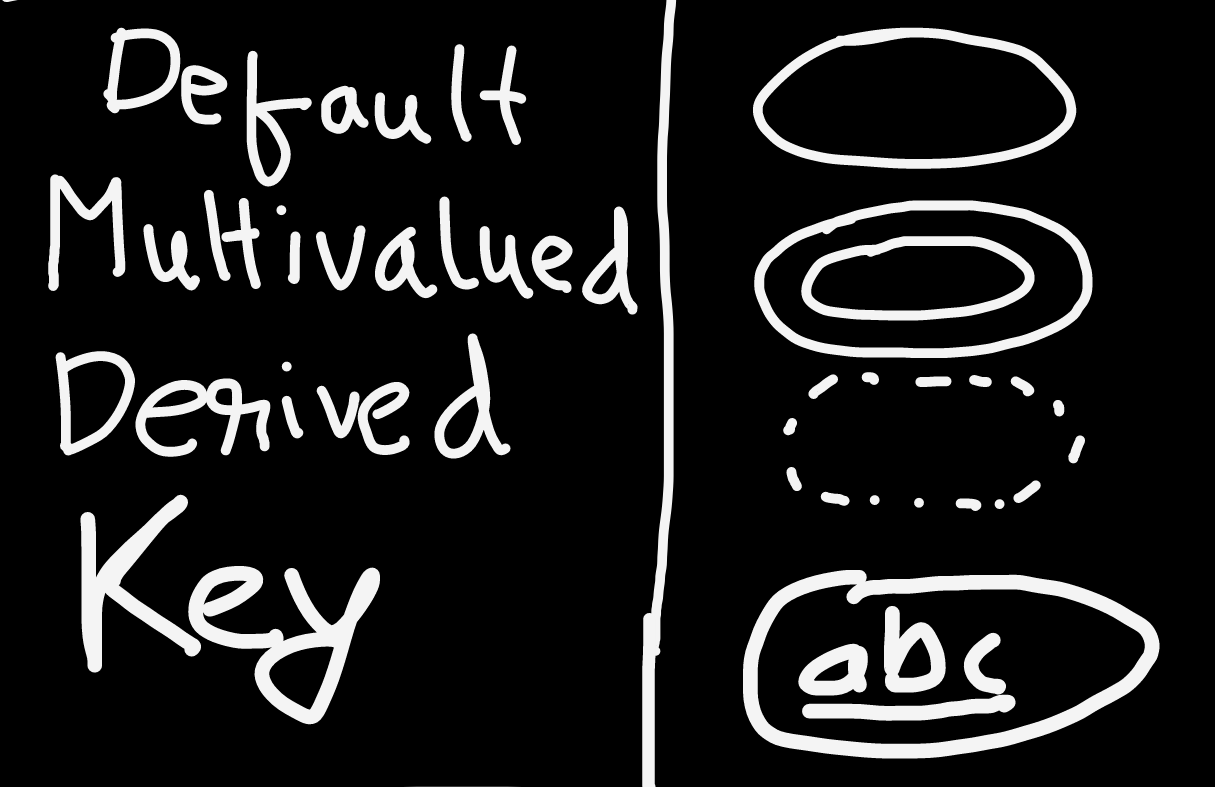 Default
Multivalued
Derived
Key
abc